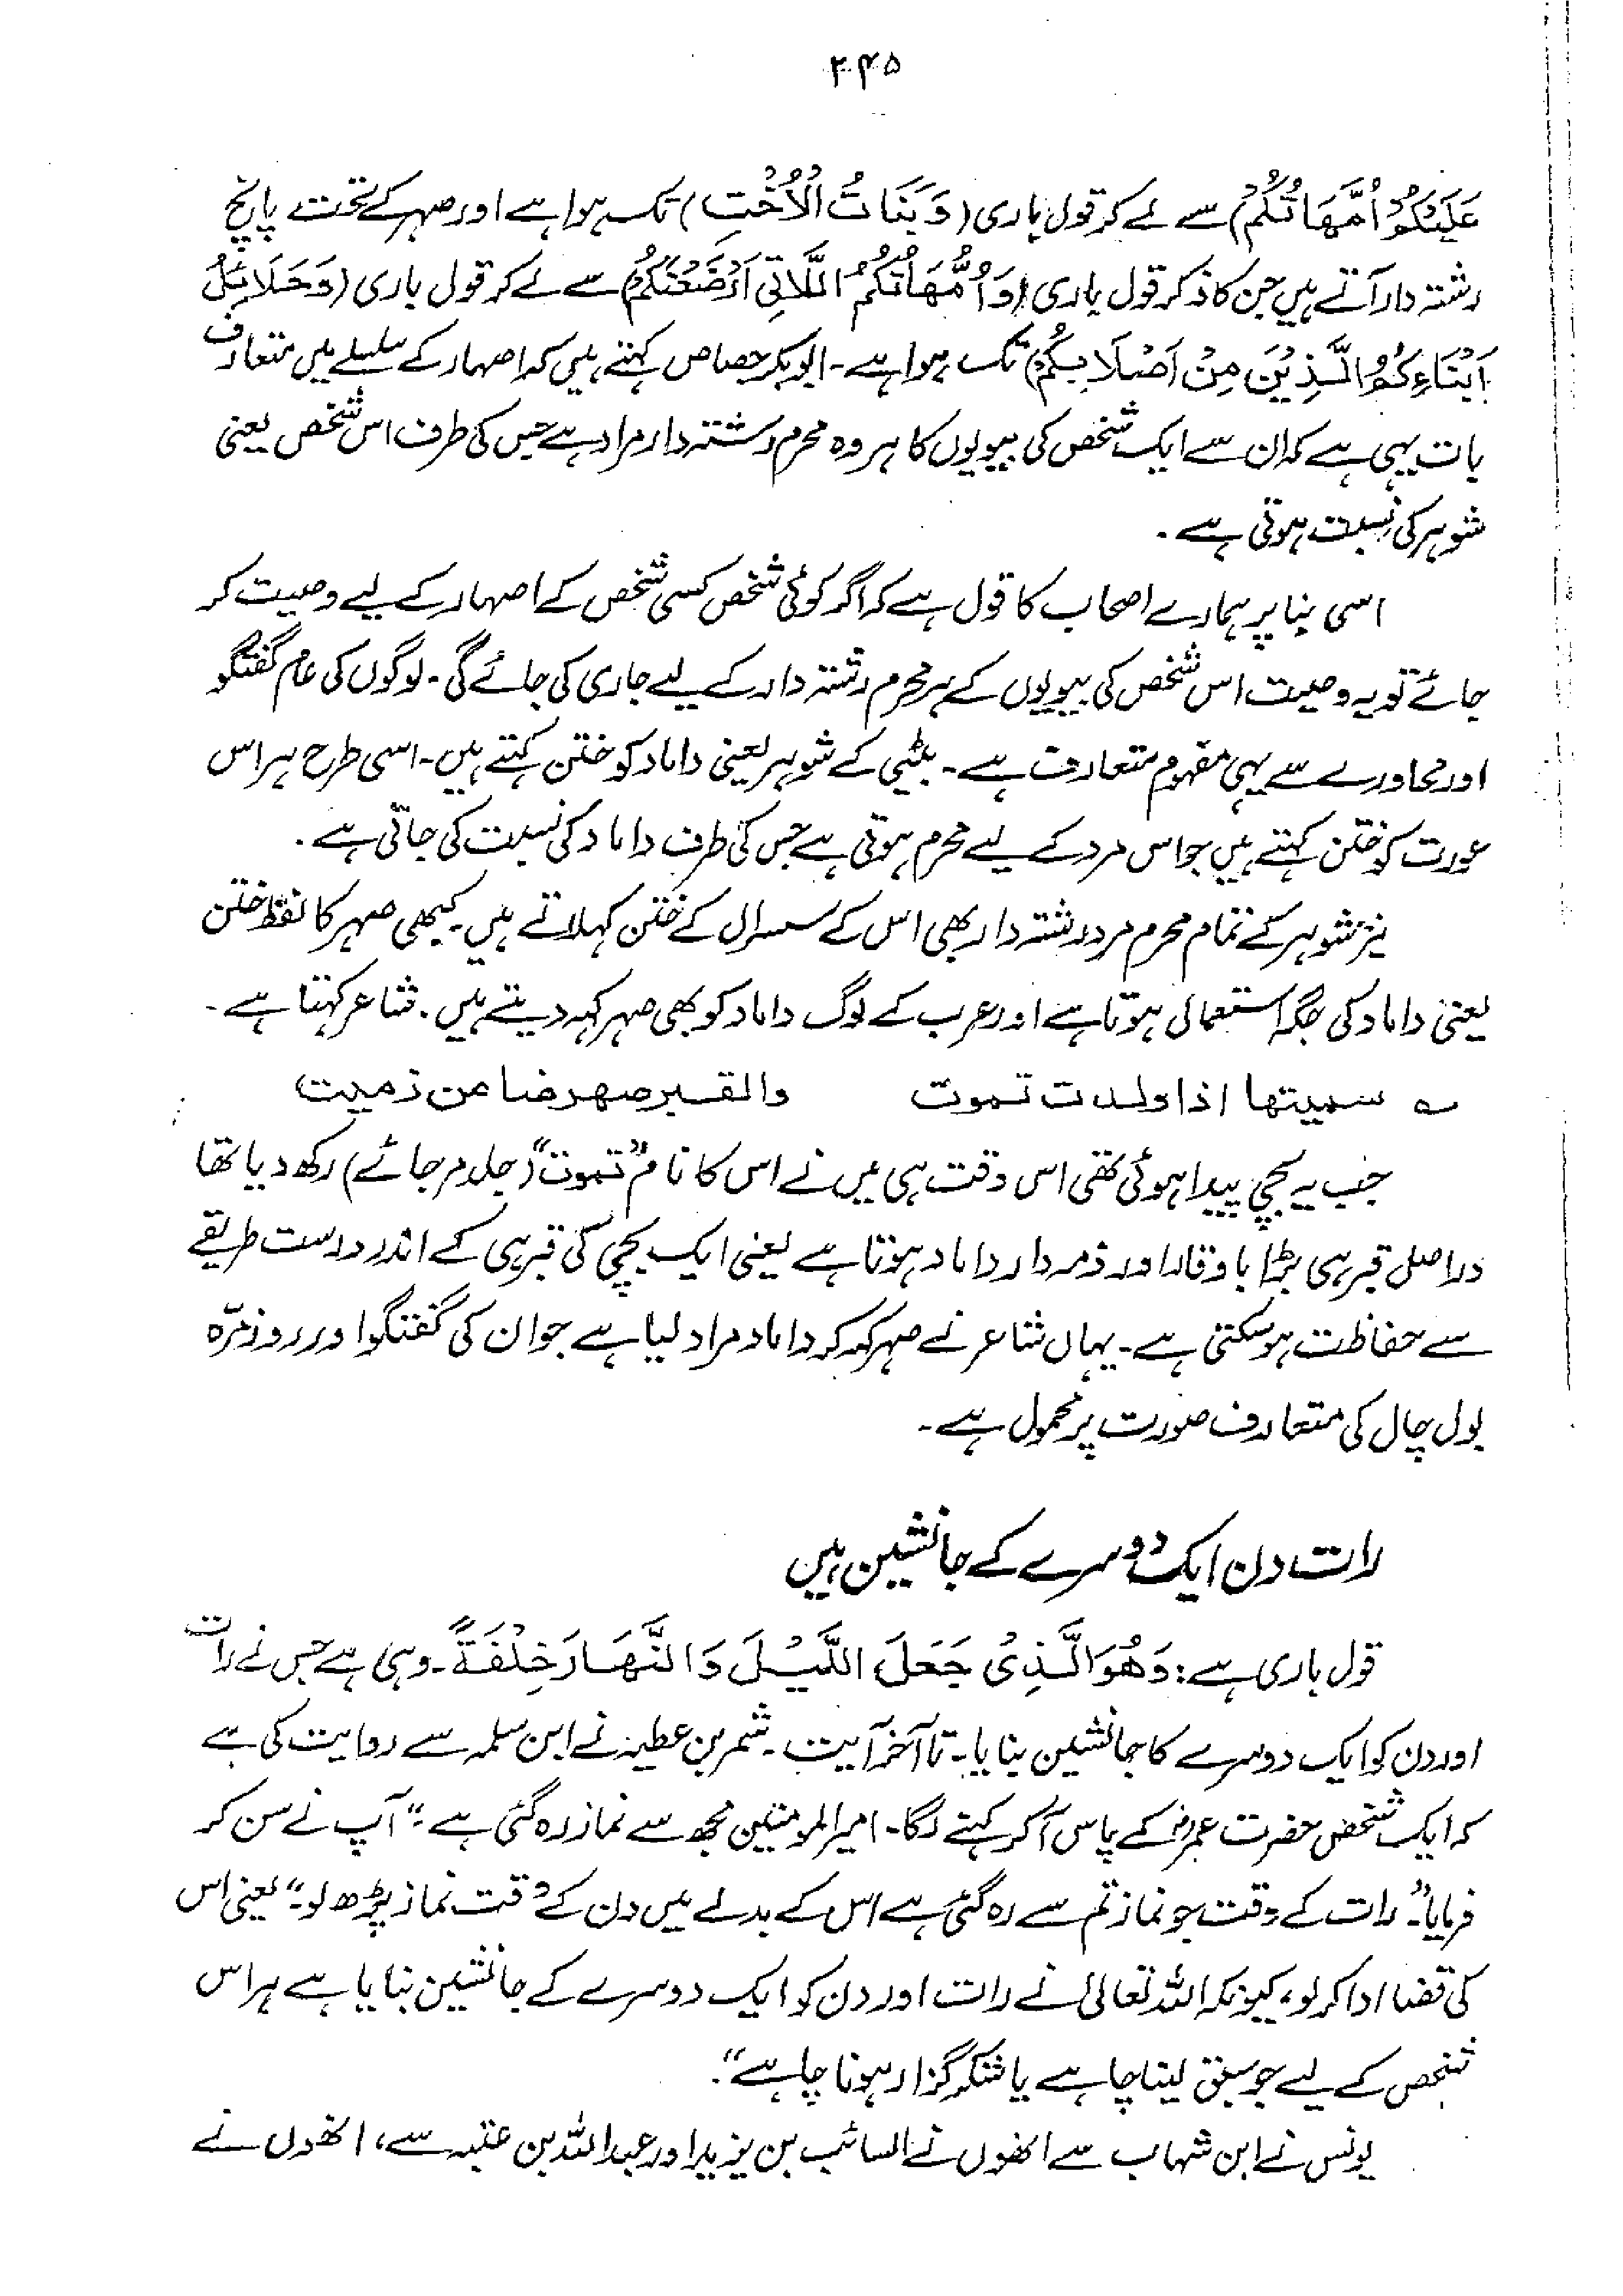 ۲۴۵
عَلَيْكُمْ اُمَّهَاتُكُمْ) سے لے کر قول باری (وَبَنَاتُ الْاُخْتِ) تک ہوا ہے اور صہر کے تحت پانچ
رشتہ دار آتے ہیں جن کا ذکر قول باری (وَاُمَّهَاتُكُمُ اللَّاتِي اَرْضَعْنَكُمْ) سے لے کر قول باری (وَحَلَائِلُ
اَبْنَاءِكُمُ الَّذِيْنَ مِنْ اَصْلَابِكُمْ) تک ہوا ہے۔ ابوبکر جصاص کہتے ہیں کہ اصہار کے سلسلے میں متعارف
بات یہی ہے کہ ان سے ایک شخص کی بیویوں کا ہر وہ محرم رشتہ دار مراد ہے جس کی طرف اس شخص یعنی
شوہر کی نسبت ہوتی ہے۔
اسی بنا پر ہمارے اصحاب کا قول ہے کہ اگر کوئی شخص کسی شخص کے اصہار کے لیے وصیت کر
جائے تو یہ وصیت اس شخص کی بیویوں کے ہر محرم رشتہ دار کے لیے جاری کی جائے گی۔ لوگوں کی عام گفتگو
اور محاورے سے یہی مفہوم متعارف ہے۔ بیٹی کے شوہر یعنی داماد کو ختن کہتے ہیں۔ اسی طرح ہر اس
عورت کو ختن کہتے ہیں جو اس مرد کے لیے محرم ہوتی ہے جس کی طرف داماد کی نسبت کی جاتی ہے۔
نیز شوہر کے تمام محرم مرد رشتہ دار بھی اس کے سسرال کے ختن کہلاتے ہیں۔ کبھی صہر کا لفظ ختن
یعنی داماد کی جگہ استعمال ہوتا ہے اور عرب کے لوگ داماد کو بھی صہر کہہ دیتے ہیں۔ شاعر کہتا ہے۔
؎ سمیتها اذا ولدت تموت والقبر صهر ضامن زمیت
جب یہ بچی پیدا ہوئی تھی اس وقت ہی میں نے اس کا نام "تموت" (جلد مر جائے) رکھ دیا تھا
دراصل قبر ہی بڑا با وقار اور ذمہ دار داماد ہوتا ہے یعنی ایک بچی کی قبر ہی کے اندر درست طریقے
سے حفاظت ہو سکتی ہے۔ یہاں شاعر نے صہر کہہ کر داماد مراد لیا ہے جو ان کی گفتگو اور روزمرّہ
بول چال کی متعارف صورت پر محمول ہے۔
رات دن ایک دوسرے کے جانشین ہیں
قول باری ہے: وَهُوَ الَّذِىْ جَعَلَ اللَّيْلَ وَالنَّهَارَ خِلْفَةً۔ وہی ہے جس نے رات
اور دن کو ایک دوسرے کا جانشین بنایا۔ تا آخر آیت۔ شمر بن عطیہ نے ابن سلمہ سے روایت کی ہے
کہ ایک شخص حضرت عمرؓ کے پاس آ کر کہنے لگا۔ امیر المومنین مجھ سے نماز رہ گئی ہے۔" آپ نے سن کر
فرمایا "۔ رات کے وقت جو نماز تم سے رہ گئی ہے اس کے بدلے میں دن کے وقت نماز پڑھ لو۔" یعنی اس
کی قضا ادا کر لو، کیونکہ اللہ تعالیٰ نے رات اور دن کو ایک دوسرے کے جانشین بنایا ہے ہر اس
شخص کے لیے جو سبق لینا چاہے یا شکر گزار ہونا چاہے"۔
یونس نے ابن شہاب سے انھوں نے السائب بن یزید اور عبداللہ بن عتبہ سے، انھوں نے